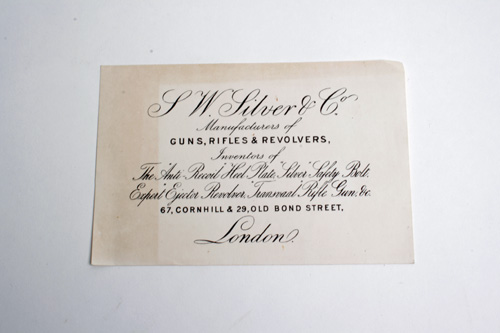 S. W. Silver & Co.
Manufacturers of
GUNS, RIFLES & REVOLVERS,
Inventors of
The "Anti-Recoil" Heel Plate, "Silver" Safety Bolt,
Expert Ejector Revolver, Transvaal Rifle Gun, &c.
67, CORNHILL & 29, OLD BOND STREET,
London.